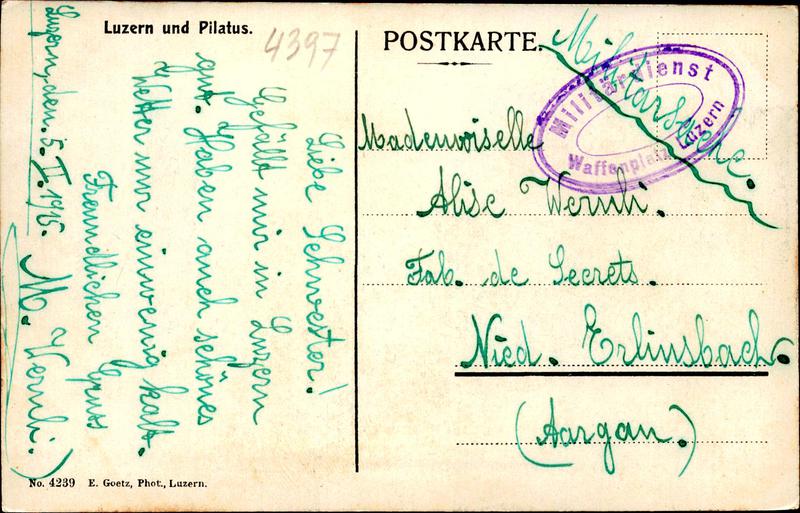 Luzern und Pilatus.
4397
Luzern, den. 5. II. 1916.
Liebe Schwester!
Gefällt mir in Luzern
gut. Haben auch schönes
Wetter nur einwenig kalt.
Freundlichen Gruss
M. Wernli.
No. 4239 E. Goetz, Phot., Luzern.
POSTKARTE.
Militärsache.
Militärdienst
Waffenplatz Luzern
Mademoiselle
Alise Wernli.
Fab. de Secrets.
Nied. Erlinsbach.
(Aargau.)